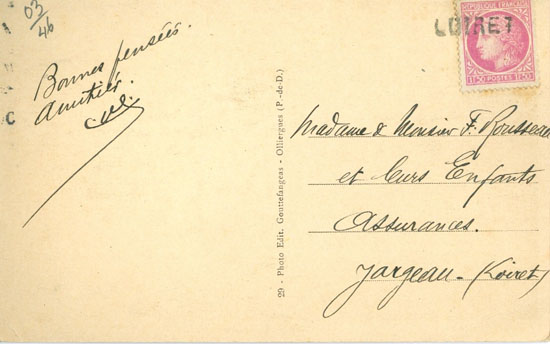 03/46
Bonnes pensées.
Amitiés.
C
LOIRET
REPUBLIQUE FRANÇAISE
1F50 POSTES 1F50
29 - Photo Edit. Gouttefangeas - Olliergues (P.-de-D.)
Madame & Monsieur F. Rousseau
et leurs Enfants
Assurances.
Jargeau - (Loiret)